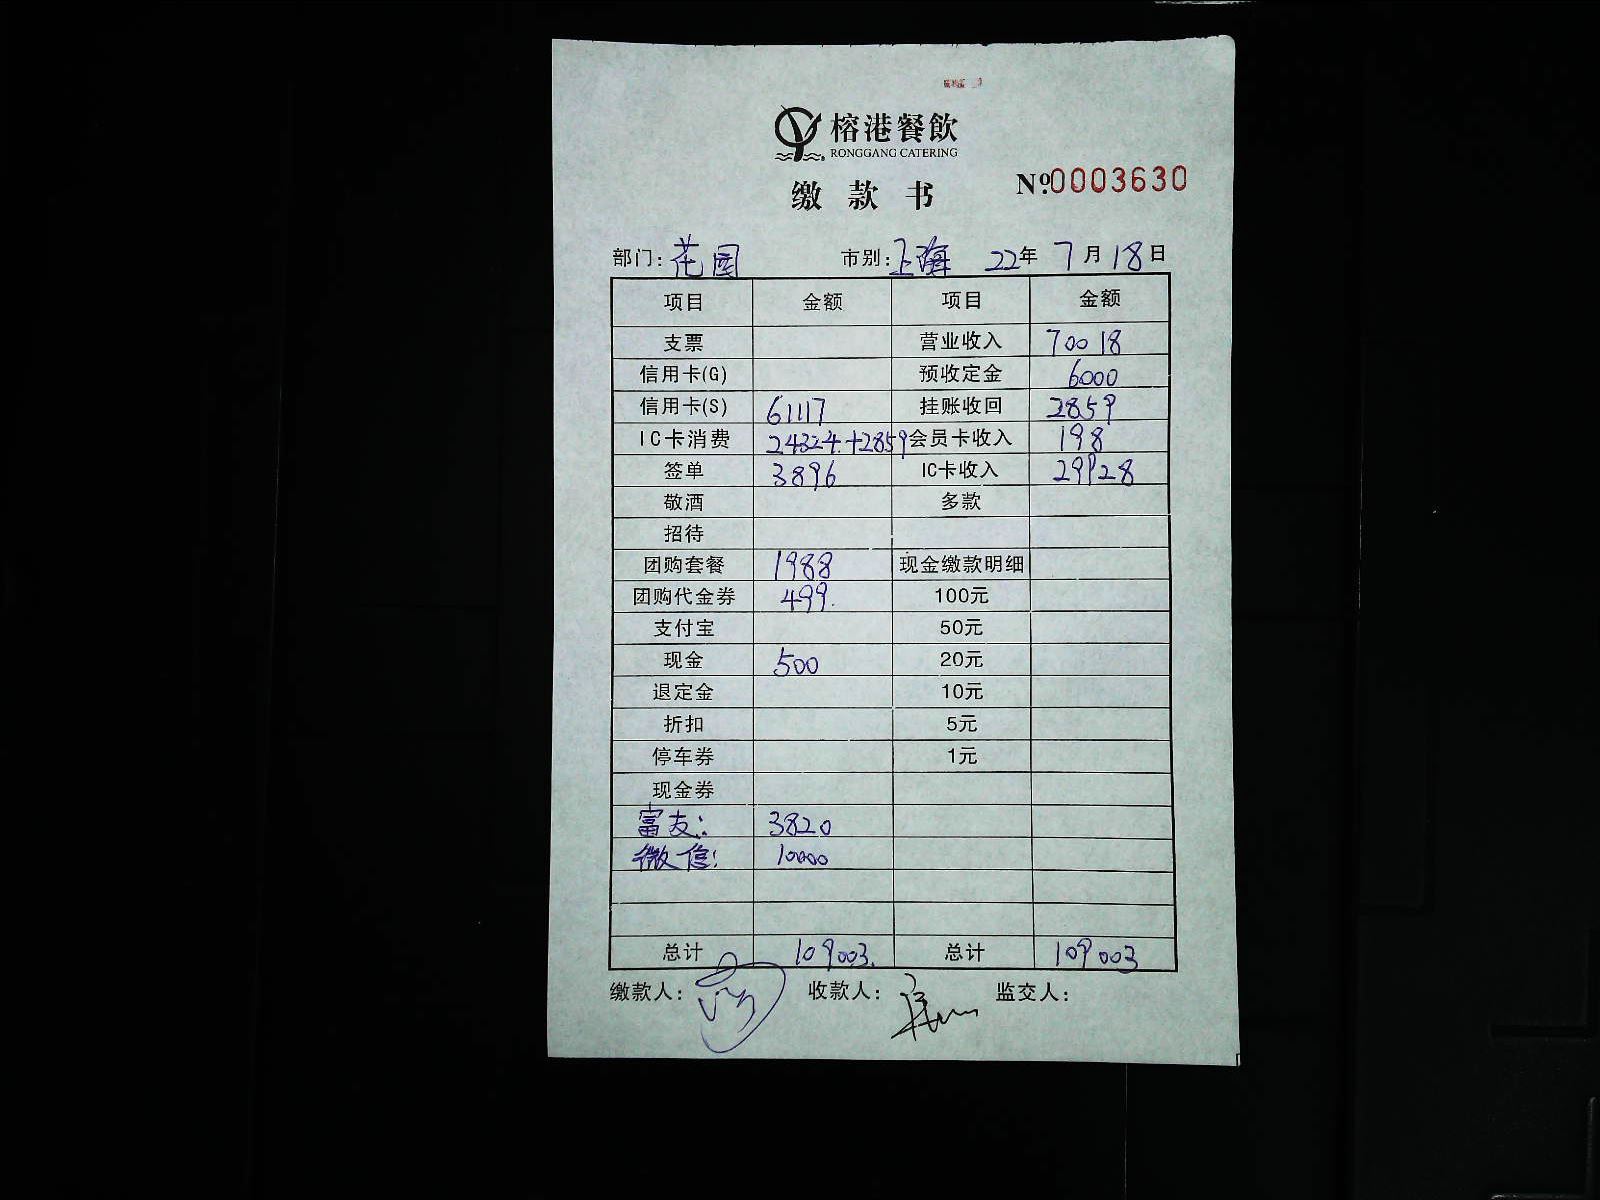 榕港餐飲
RONGGANG CATERING
缴款书 Nº.0003630
部门：花园 市别：上海 22年 7月18日
项目 金额 项目 金额
支票 营业收入 70018
信用卡(G) 预收定金 6000
信用卡(S) 61117 挂账收回 2859
IC卡消费 24324.+2859 会员卡收入 198
签单 3896 IC卡收入 29928
敬酒 多款
招待
团购套餐 1988 现金缴款明细
团购代金券 499. 100元
支付宝 50元
现金 500 20元
退定金 10元
折扣 5元
停车券 1元
现金券
富友： 3820
微信： 10000
总计 109003. 总计 109003
缴款人： 收款人： 监交人：